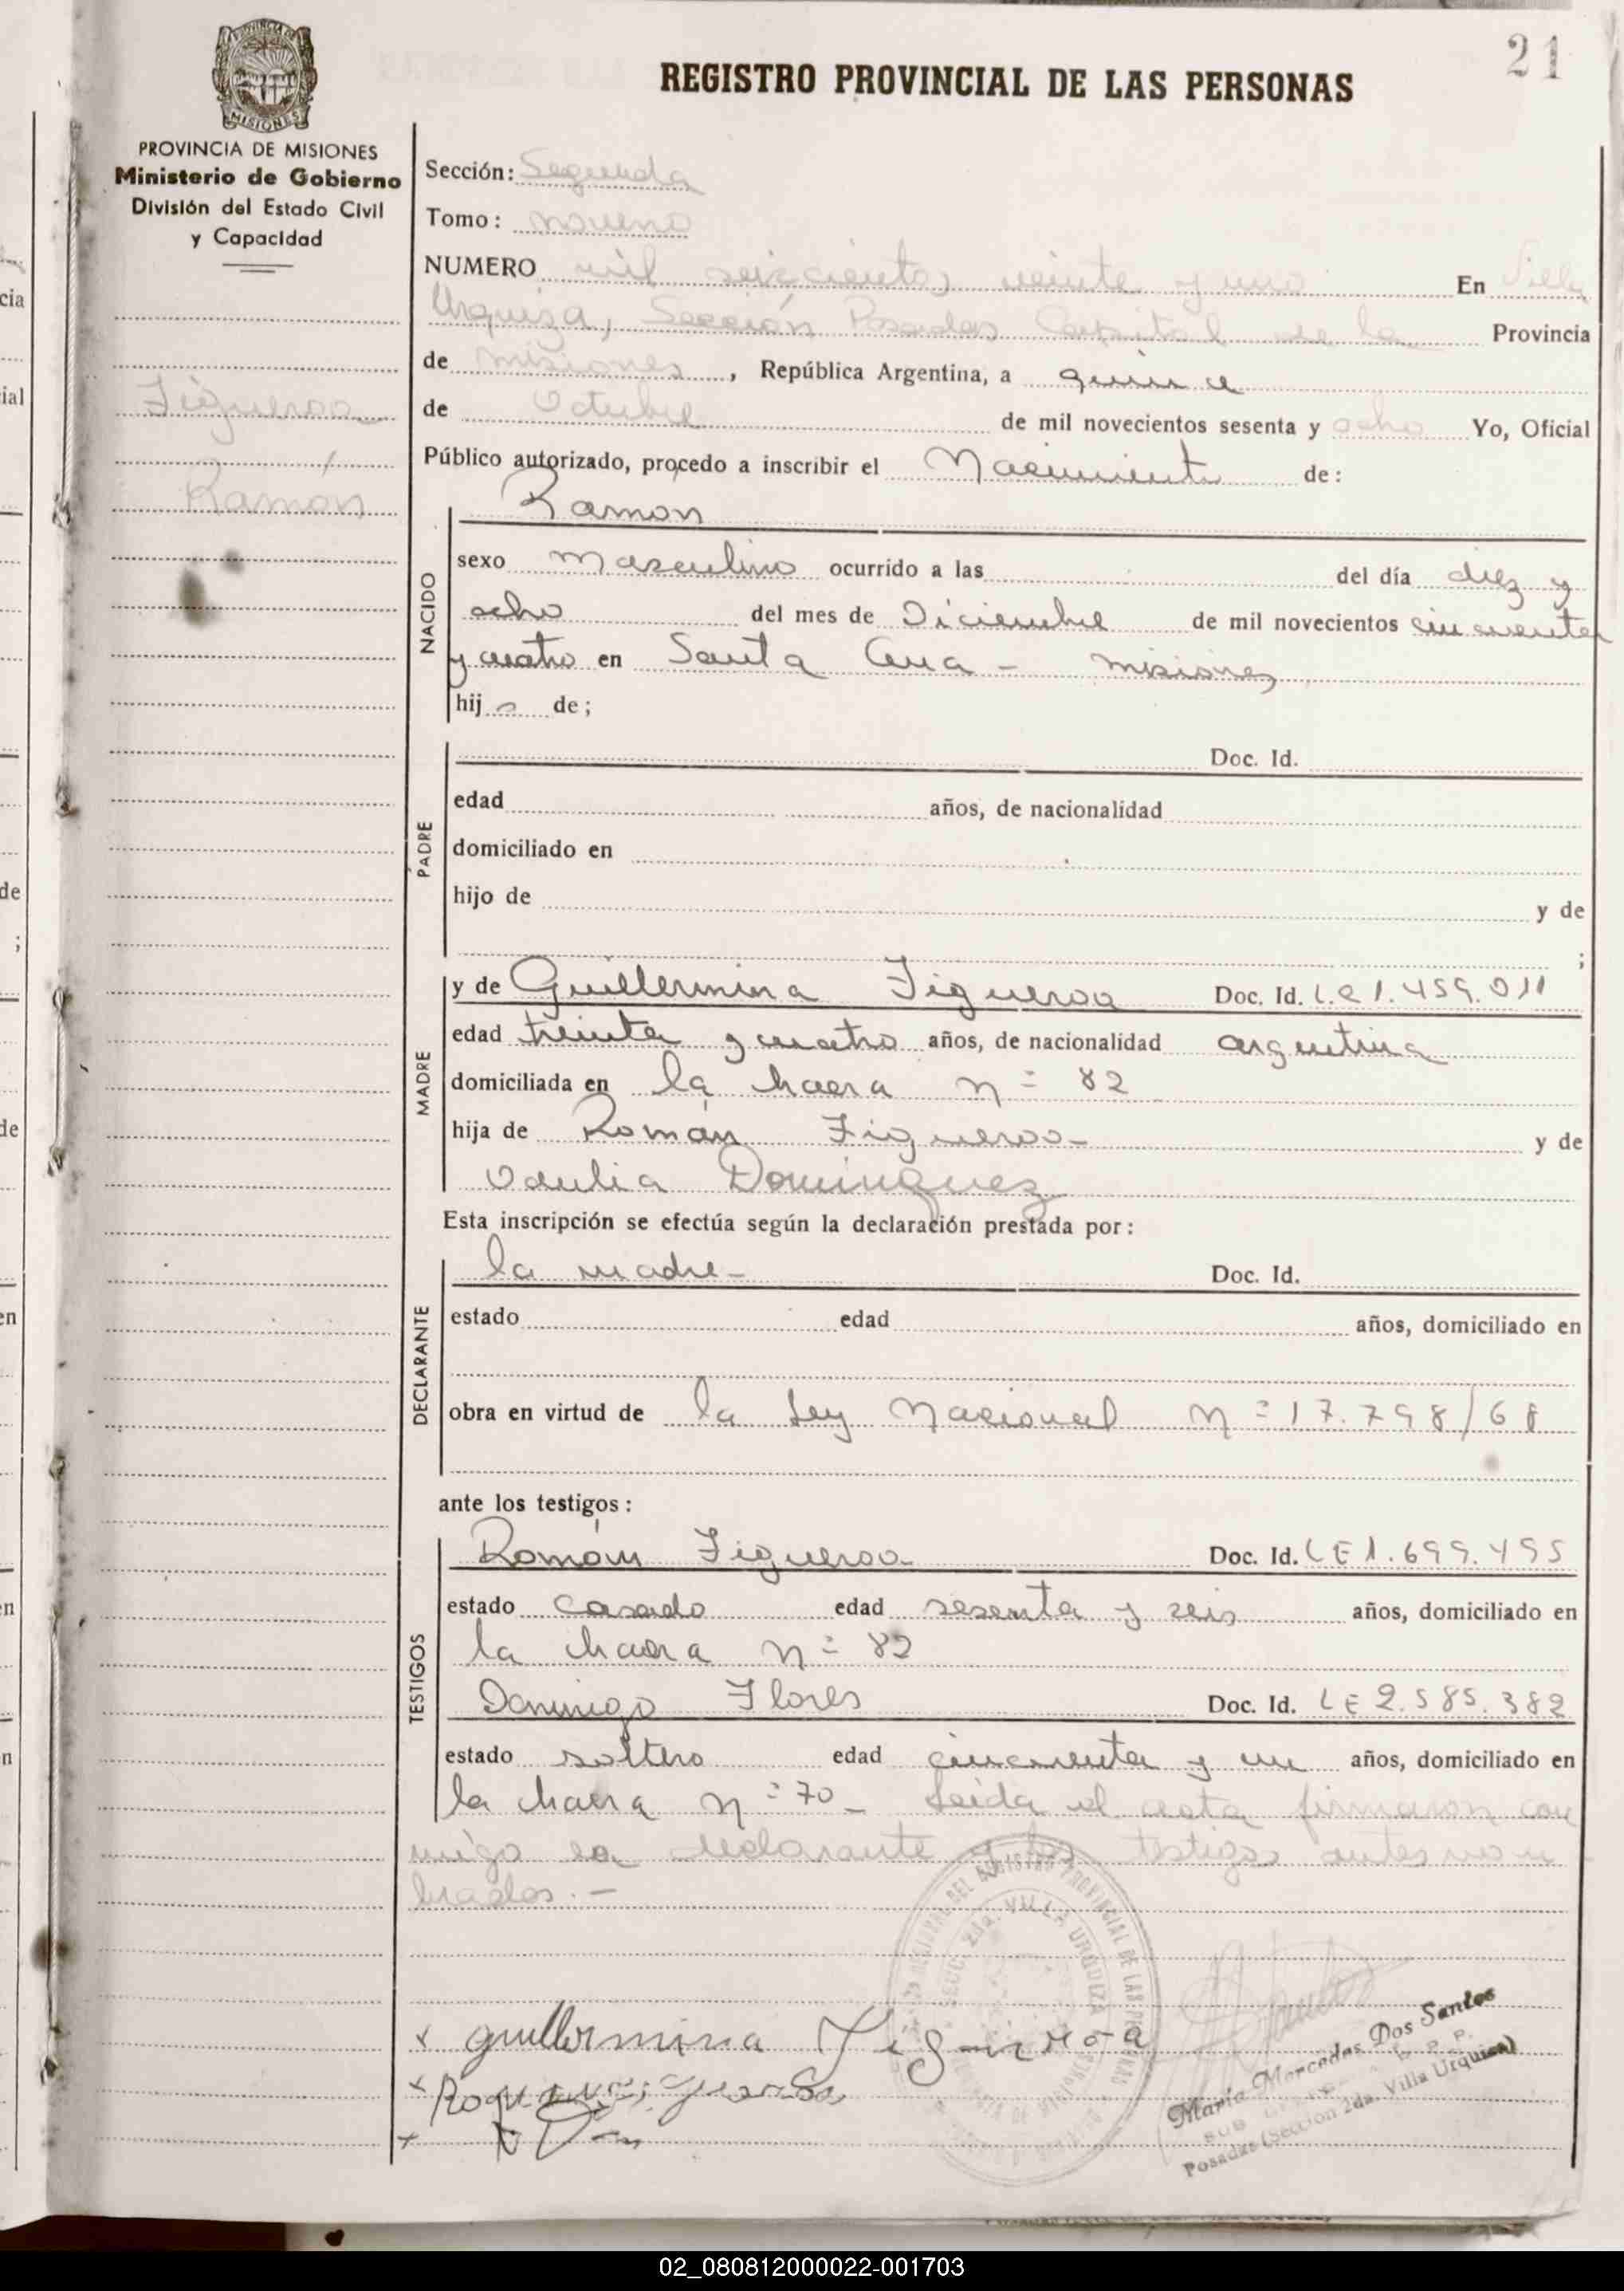 21
REGISTRO PROVINCIAL DE LAS PERSONAS
PROVINCIA DE MISIONES
Ministerio de Gobierno
División del Estado Civil
y Capacidad
MISIONES
Figueroa
Ramón
Sección: Segunda
Tomo: noveno
NUMERO mil seiscientos veinte y uno En Villa
Urquiza, Sección Posadas Capital de la Provincia
de misiones, República Argentina, a quince
de Octubre de mil novecientos sesenta y ocho Yo, Oficial
Público autorizado, procedo a inscribir el Nacimiento de:
NACIDO
Ramon
sexo masculino ocurrido a las del día diez y
ocho del mes de Diciembre de mil novecientos cincuenta
y cuatro en Santa Ana - misiones
hijo de;
PADRE
Doc. Id.
edad años, de nacionalidad
domiciliado en
hijo de y de
;
MADRE
y de Guillermina Figueroa Doc. Id. L.C 1.459.011
edad treinta y cuatro años, de nacionalidad argentina
domiciliada en la chacra n= 82
hija de Román Figueroa- y de
Odulia Dominguez
Esta inscripción se efectúa según la declaración prestada por:
DECLARANTE
la madre- Doc. Id.
estado edad años, domiciliado en
obra en virtud de la Ley Nacional N= 17.798/68
ante los testigos:
TESTIGOS
Román Figueroa- Doc. Id. LE 1.699.495
estado casado edad sesenta y seis años, domiciliado en
la chacra n= 82
Domingo Flores Doc. Id. LE 2.585.382
estado soltero edad cincuenta y un años, domiciliado en
la chacra n= 70- Leída el acta firmaron con
migo la declarante y los testigos antes nom
brados.-
SECC. 2da. VILLA URQUIZA
REGISTRO PROVINCIAL DE LAS PERSONAS
x guillermina Figueroa
x
x
María Mercedes Dos Santos
Posadas (Sección 2da. Villa Urquiza)
02_080812000022-001703